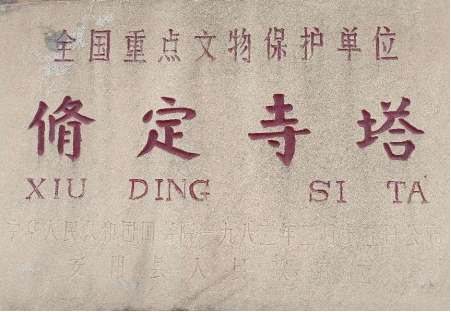 全国重点文物保护单位
脩定寺塔
XIU DING SI TA
中华人民共和国国务院一九八二年二月二十三日公布
安阳县人民政府立